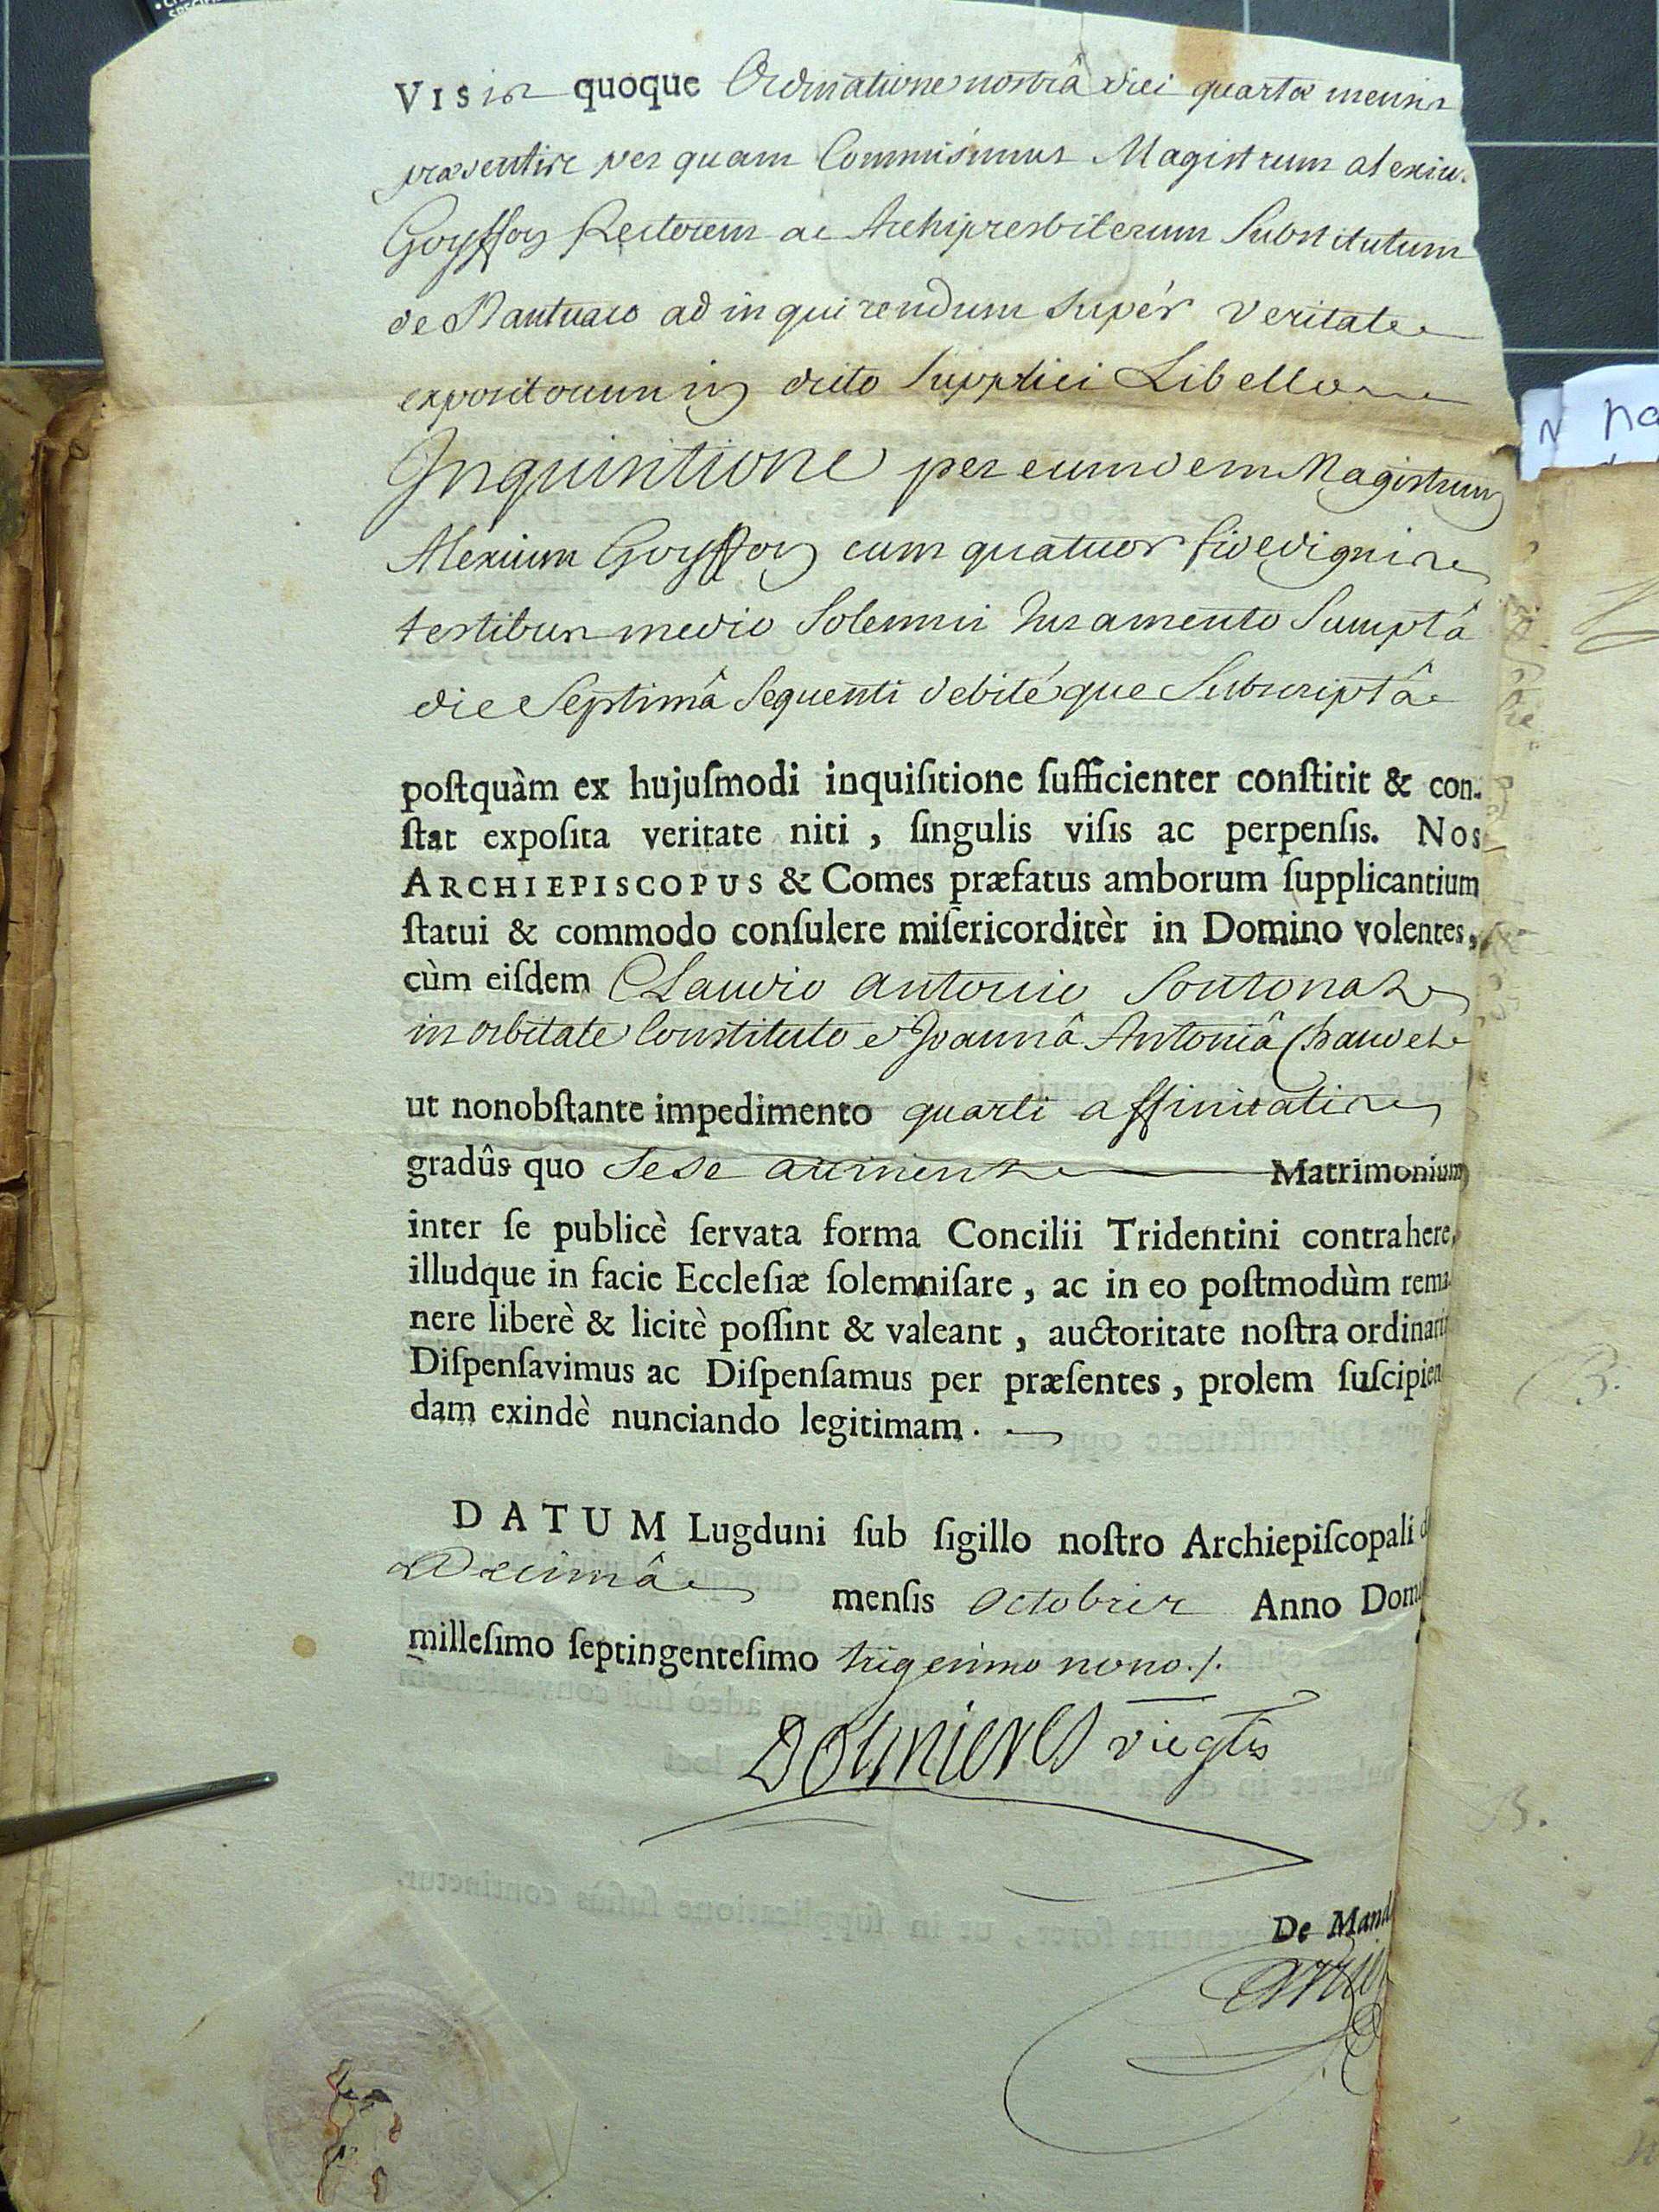 VISis quoque Ordinatione nostrâ diei quartæ mensis
præsentis per quam Commisimus Magistrum alexiu.
Goyffon Rectorem ac Archipresbiterum Substitutum
de Nantuaco ad inquirendum supér veritate
expositorum in dicto supplici Libello
Inquisitione per eumdem Magistrum
Alexium Goyffon cum quatuor fidedignis
testibus medio Solemni Juramento Sumptâ
die Septimâ Sequenti debitéque Subscriptâ
poſtquàm ex hujuſmodi inquiſitione ſufficienter conſtitit & con-
ſtat expoſita veritate niti, ſingulis viſis ac perpenſis. Nos
ARCHIEPISCOPUS & Comes præfatus amborum ſupplicantium
ſtatui & commodo conſulere miſericorditèr in Domino volentes,
cùm eiſdem Claudio antonio Sontonas
in orbitate Constituto & Joannâ Antoniâ Chaudet
ut nonobſtante impedimento quarti affinitatis
gradûs quo sese attinent Matrimonium
inter ſe publicè ſervata forma Concilii Tridentini contrahere,
illudque in facie Eccleſiæ ſolemniſare, ac in eo poſtmodùm rema
nere liberè & licitè poſſint & valeant, auctoritate noſtra ordinari
Diſpenſavimus ac Diſpenſamus per præſentes, prolem ſuſcipien
dam exindè nunciando legitimam.
DATUM Lugduni ſub ſigillo noſtro Archiepiſcopali d
Decimâ menſis octobris Anno Dom
milleſimo ſeptingenteſimo trigesimo nono./.
vic glis
De Mand